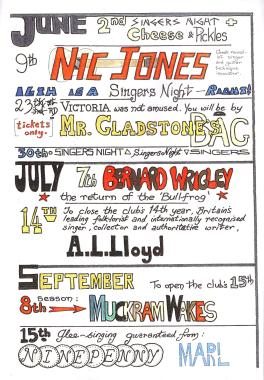 JUNE 2nd SINGERS NIGHT +
Cheese & Pickles
9th NIC JONES
singer
and guitar
technique
innovator.
16TH IS A Singers Night
23 VICTORIA was not amused. You will be by
tickets only: MR. GLADSTONE'S BAG
30th SINGERS NIGHT Singers Night SINGERS
JULY 7th BERNARD WRIGLEY
the return of the 'Bullfrog'
14TH To close the club's 14th year, Britain's
leading folklorist and internationally recognised
singer, collector and authoritative writer,
A.L.Lloyd
SEPTEMBER To open the clubs 15th
8th season: MUCKRAM WAKES
15th Glee-singing guaranteed from:
NINEPENNY MARL